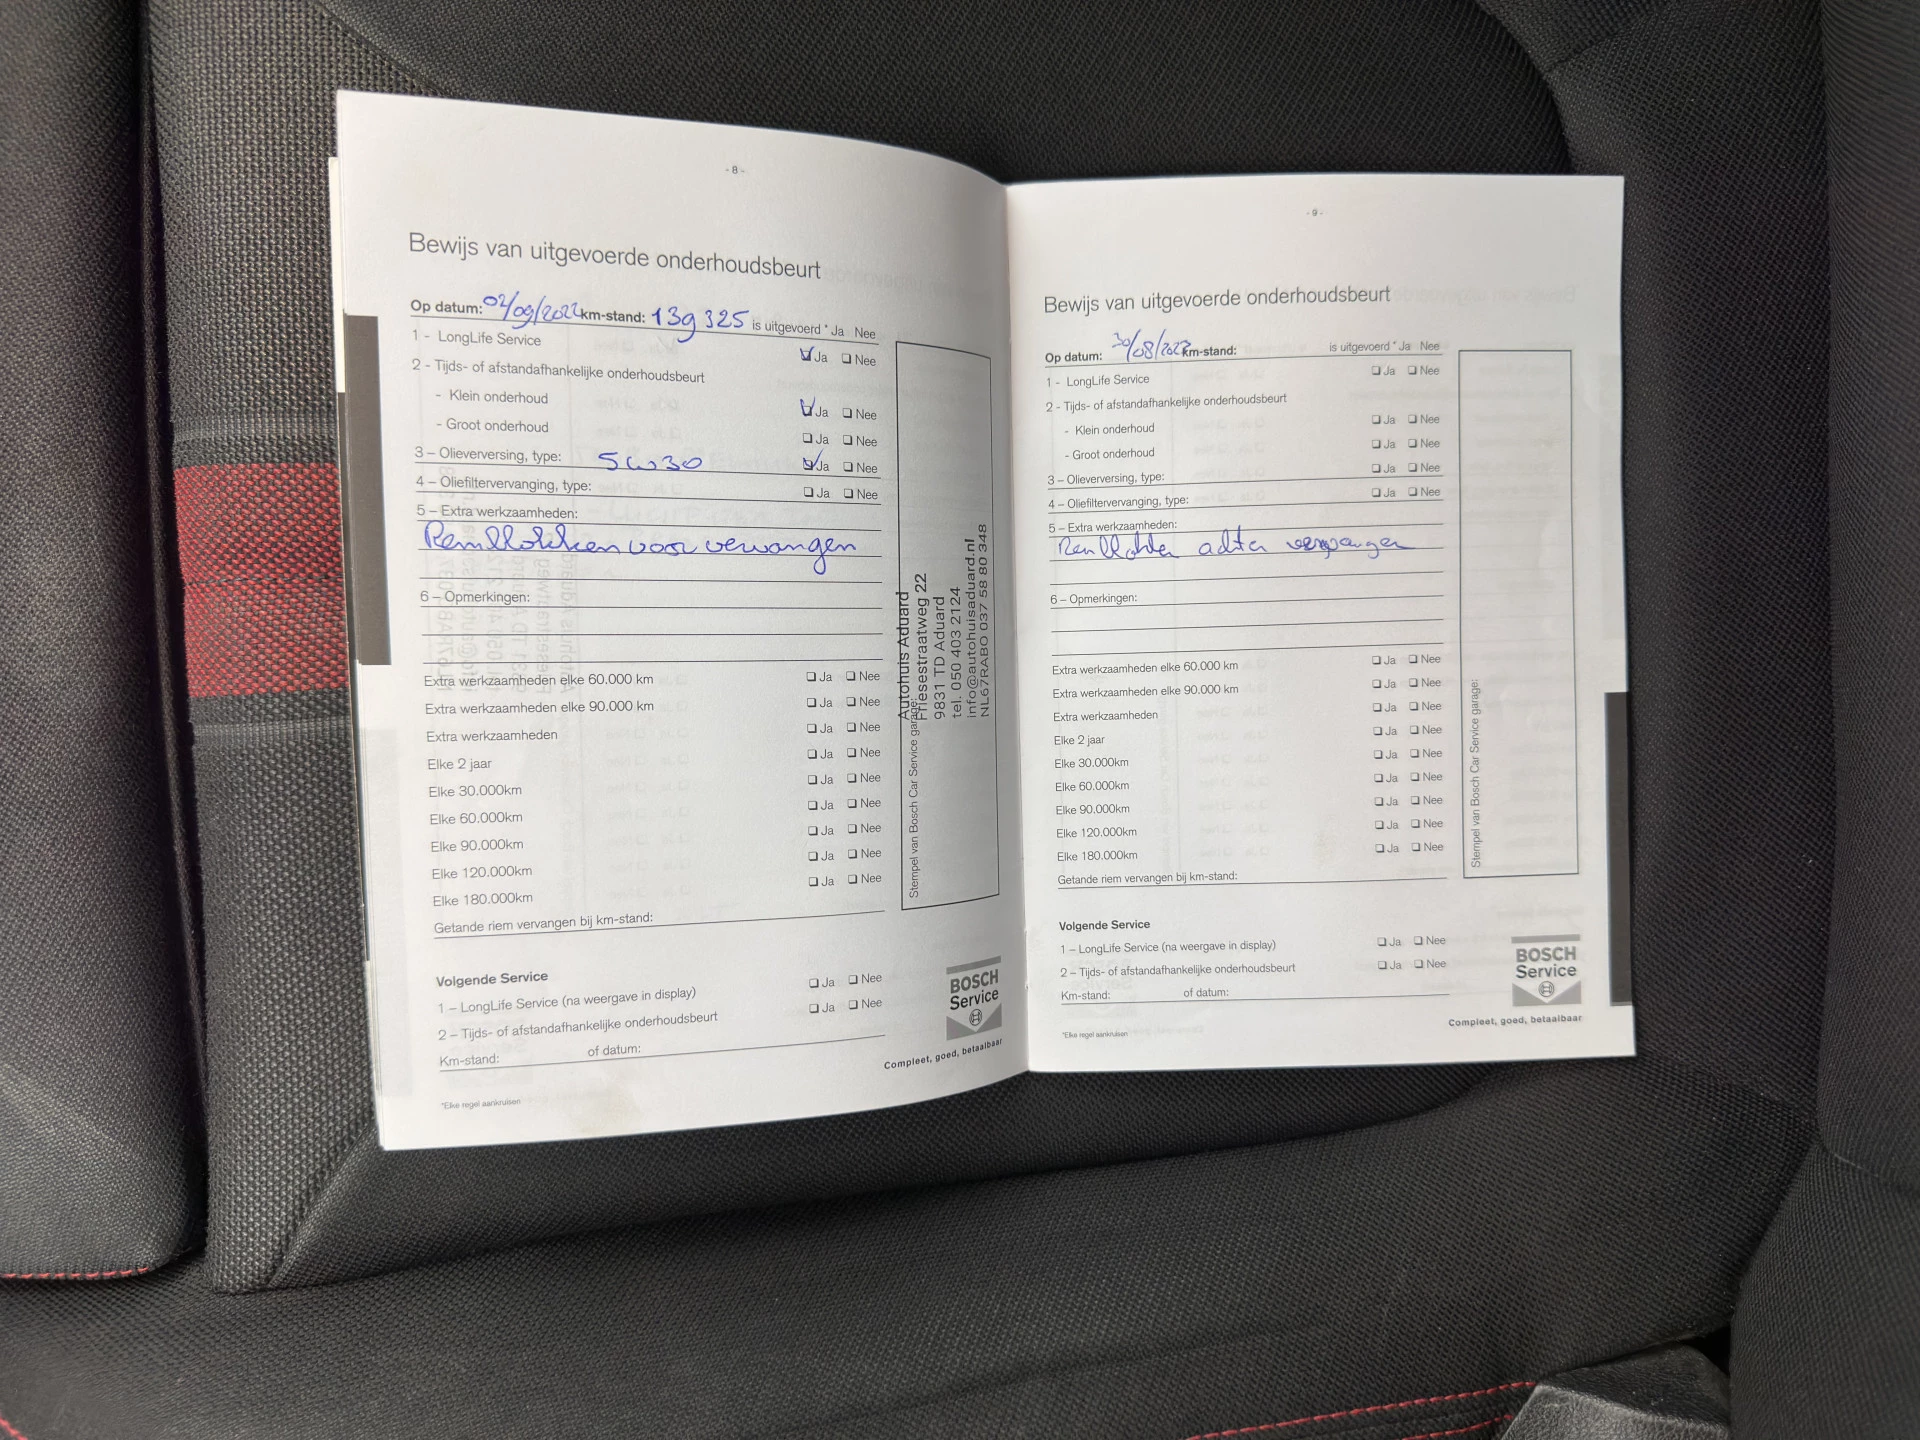 - 8 -
Bewijs van uitgevoerde onderhoudsbeurt
Op datum: 02/09/2022 km-stand: 139 325 is uitgevoerd * Ja Nee
1 - LongLife Service Ja Nee
2 - Tijds- of afstandafhankelijke onderhoudsbeurt
- Klein onderhoud Ja Nee
- Groot onderhoud Ja Nee
3 – Olieverversing, type: 5W30 Ja Nee
4 – Oliefiltervervanging, type: Ja Nee
5 – Extra werkzaamheden:
Remblokken voor vervangen
6 – Opmerkingen:
Extra werkzaamheden elke 60.000 km Ja Nee
Extra werkzaamheden elke 90.000 km Ja Nee
Extra werkzaamheden Ja Nee
Elke 2 jaar Ja Nee
Elke 30.000km Ja Nee
Elke 60.000km Ja Nee
Elke 90.000km Ja Nee
Elke 120.000km Ja Nee
Elke 180.000km Ja Nee
Getande riem vervangen bij km-stand:
Volgende Service
1 – LongLife Service (na weergave in display) Ja Nee
2 – Tijds- of afstandafhankelijke onderhoudsbeurt Ja Nee
Km-stand: of datum:
*Elke regel aankruisen
Stempel van Bosch Car Service garage:
Autohuis Aduard
Friesestraatweg 22
9831 TD Aduard
tel. 050 403 2124
info@autohuisaduard.nl
NL67RABO 037 58 80 348
BOSCH
Service
Compleet, goed, betaalbaar
- 9 -
Bewijs van uitgevoerde onderhoudsbeurt
Op datum: 30/08/2023 km-stand: is uitgevoerd * Ja Nee
1 - LongLife Service Ja Nee
2 - Tijds- of afstandafhankelijke onderhoudsbeurt
- Klein onderhoud Ja Nee
- Groot onderhoud Ja Nee
3 – Olieverversing, type: Ja Nee
4 – Oliefiltervervanging, type: Ja Nee
5 – Extra werkzaamheden:
Remblokken achter vervangen
6 – Opmerkingen:
Extra werkzaamheden elke 60.000 km Ja Nee
Extra werkzaamheden elke 90.000 km Ja Nee
Extra werkzaamheden Ja Nee
Elke 2 jaar Ja Nee
Elke 30.000km Ja Nee
Elke 60.000km Ja Nee
Elke 90.000km Ja Nee
Elke 120.000km Ja Nee
Elke 180.000km Ja Nee
Getande riem vervangen bij km-stand:
Volgende Service
1 – LongLife Service (na weergave in display) Ja Nee
2 – Tijds- of afstandafhankelijke onderhoudsbeurt Ja Nee
Km-stand: of datum:
*Elke regel aankruisen
Stempel van Bosch Car Service garage:
BOSCH
Service
Compleet, goed, betaalbaar